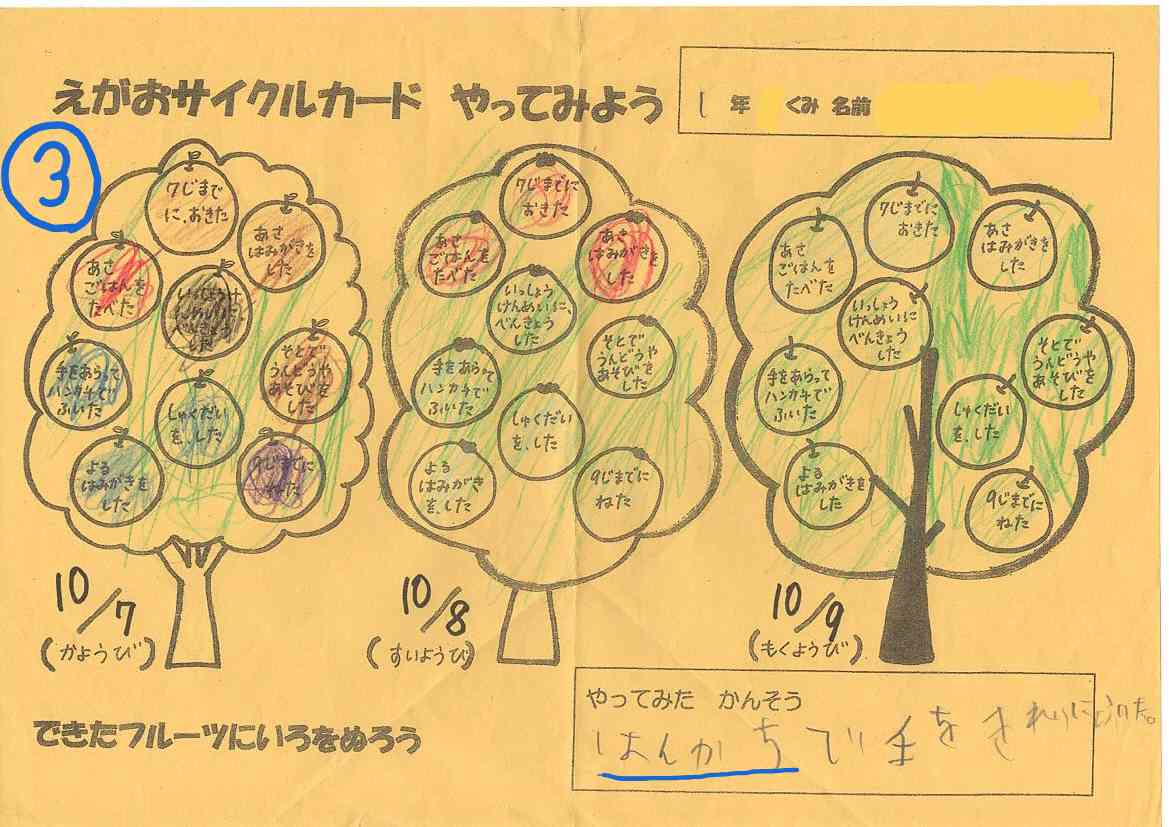 えがおサイクルカード やってみよう
1 年 くみ 名前
③
7じまで
に、おきた
あさ
はみがきを
した
あさ
ごはんを
たべた
いっしょうけ
んめいに
べんきょう
した
手をあらって
ハンカチで
ふいた
そとで
うんどうや
あそびを
した
しゅくだい
を、した
よる
はみがきを
した
9じまでに
ねた
10/7
(かようび)
7じまでに
おきた
あさ
ごはんを
たべた
あさ
はみがきを
した
いっしょう
けんめいに、
べんきょう
した
手をあらって
ハンカチで
ふいた
そとで
うんどうや
あそびを
した
しゅくだい
を、した
よる
はみがき
を、した
9じまでに
ねた
10/8
(すいようび)
7じまでに
おきた
あさ
ごはんを
たべた
あさ
はみがきを
した
いっしょう
けんめいに
べんきょう
した
手をあらって
ハンカチで
ふいた
そとで
うんどうや
あそびを
した
しゅくだい
を、した
よる
はみがきを
した
9じまでに
ねた
10/9
(もくようび)
できたフルーツにいろをぬろう
やってみた かんそう
はんかちで手をきれいにふいた。